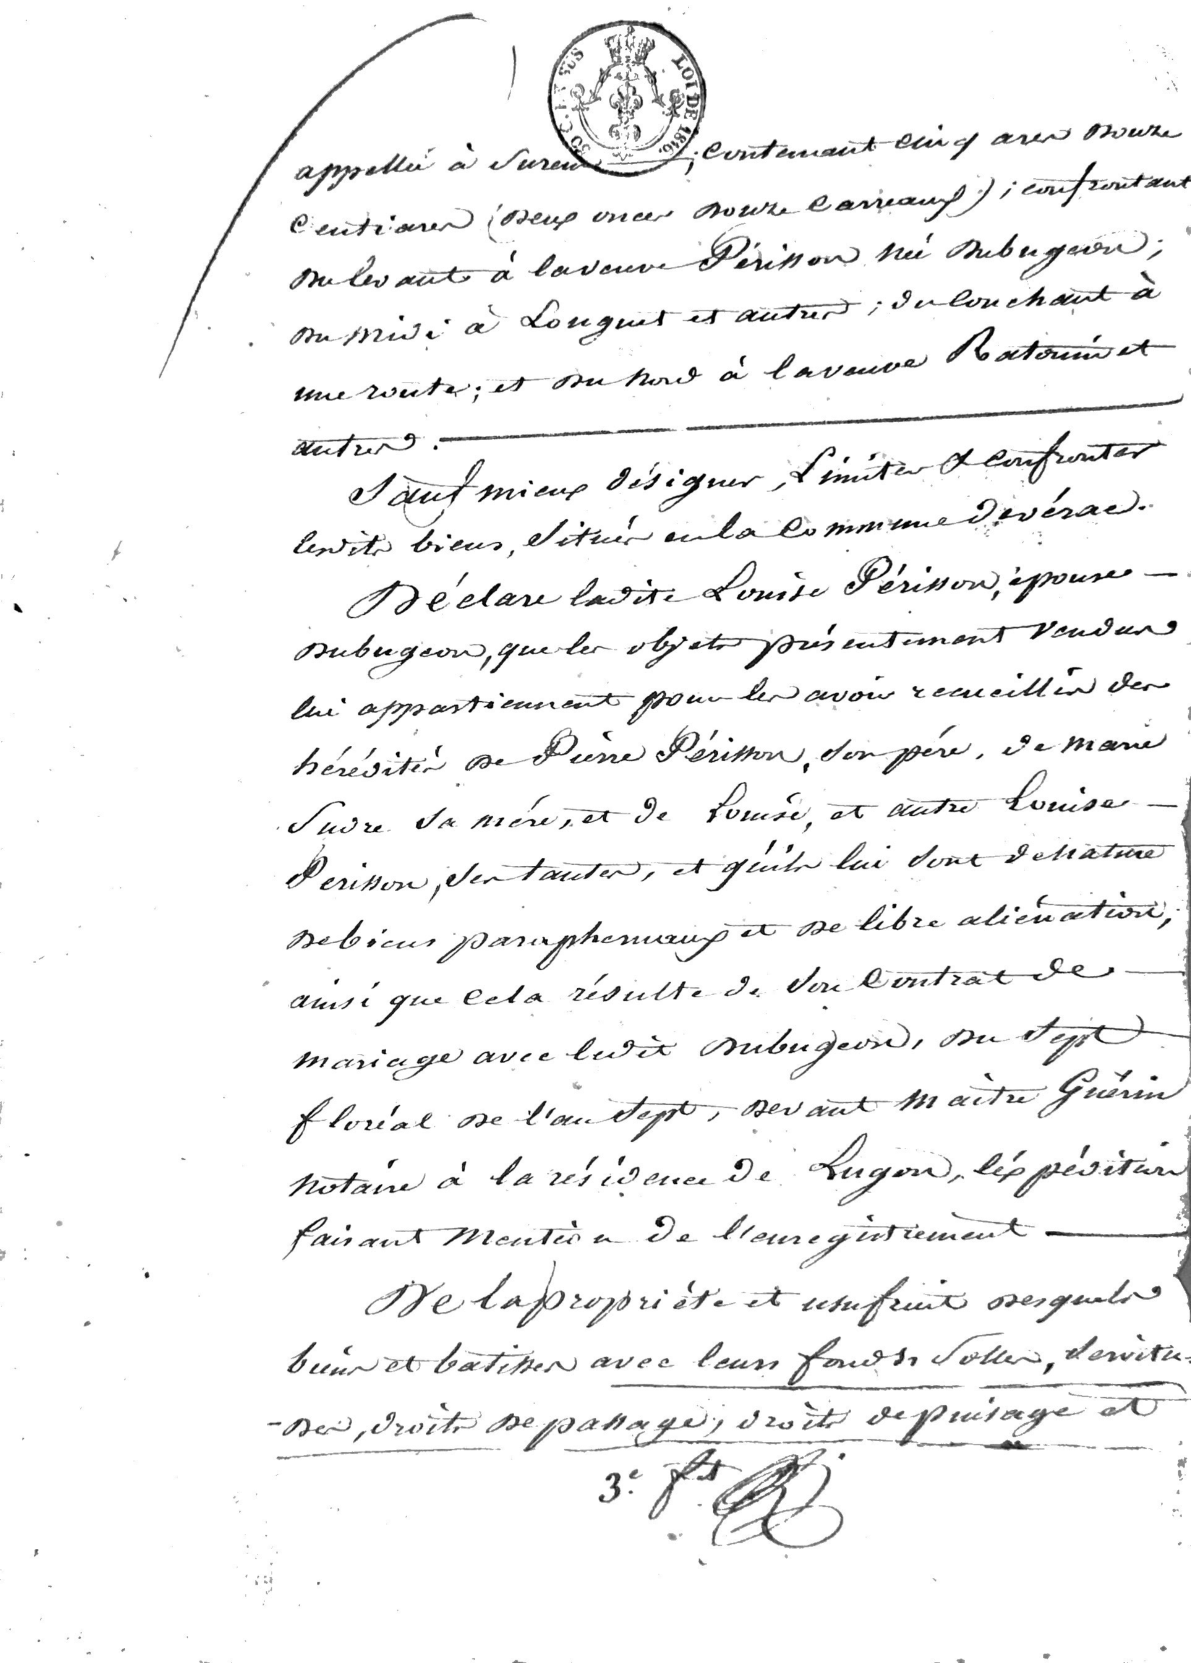 50 CENT. EN SUS LOI DE 1816.
appellée à Sureau ; contenant cinq ares douze
Centiares (deux onces douze Carreaux) ; confrontant
du levant à la veuve Périsson née Dubugeon ;
du midi à Longuet et autres ; du Couchant à
une route ; et du Nord à la veuve et
autres.
Sauf mieux désigner, Limiter & confronter
lesdits biens, situés en la Commune de vérac.
Déclare ladite Louise Périsson, épouse
Dubugeon, que les objets présentement vendus
lui appartiennent pour les avoir recueillis des
hérédités de Pierre Périsson, son père, de marie
Sudre sa mère, et de Louise, et autre Louise
Périsson, ses tantes, et qu'ils lui sont de Nature
de biens paraphernaux et de libre aliénation,
ainsi que cela résulte de son Contrat de
mariage avec ledit Dubugeon, du Sept
floréal de l'an Sept, devant maître Guérin
Notaire à la résidence de Lugon, l'éxpédition
faisant Mention de l'enregistrement
De la propriété et usufruit desquels
biens et batisses avec leurs fonds, Solles, servitu-
-des, droits de passage, droits de puisage et
3.e f.t